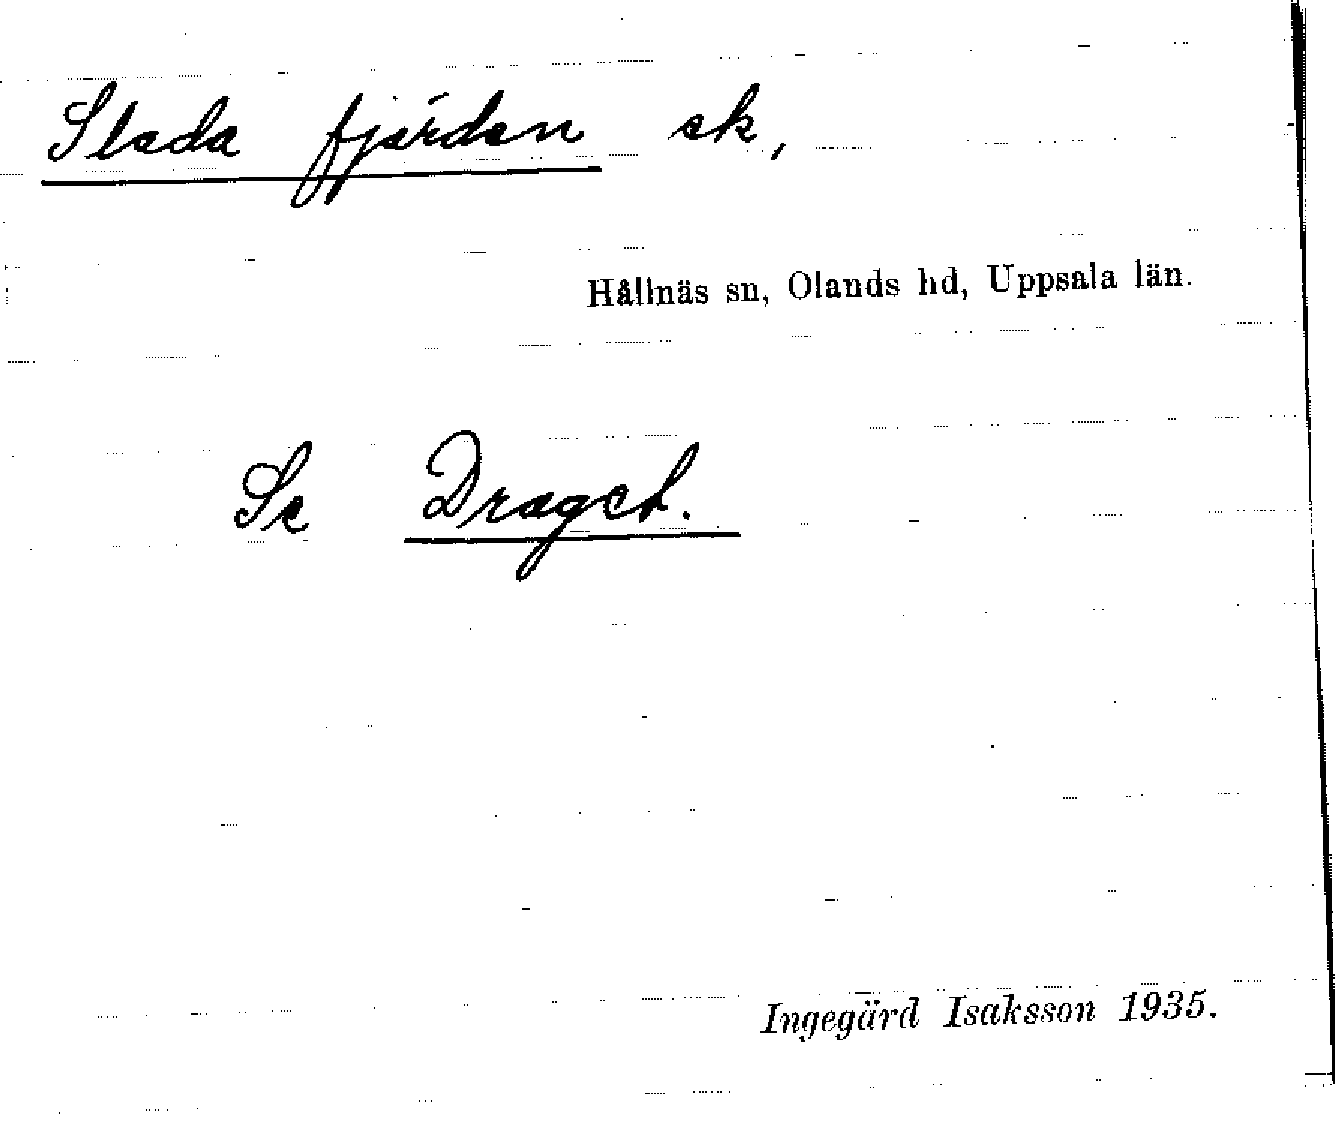 Slada fjärden ek,
Hållnäs sn, Olands hd, Uppsala län.
Se Draget.
Ingegärd Isaksson 1935.